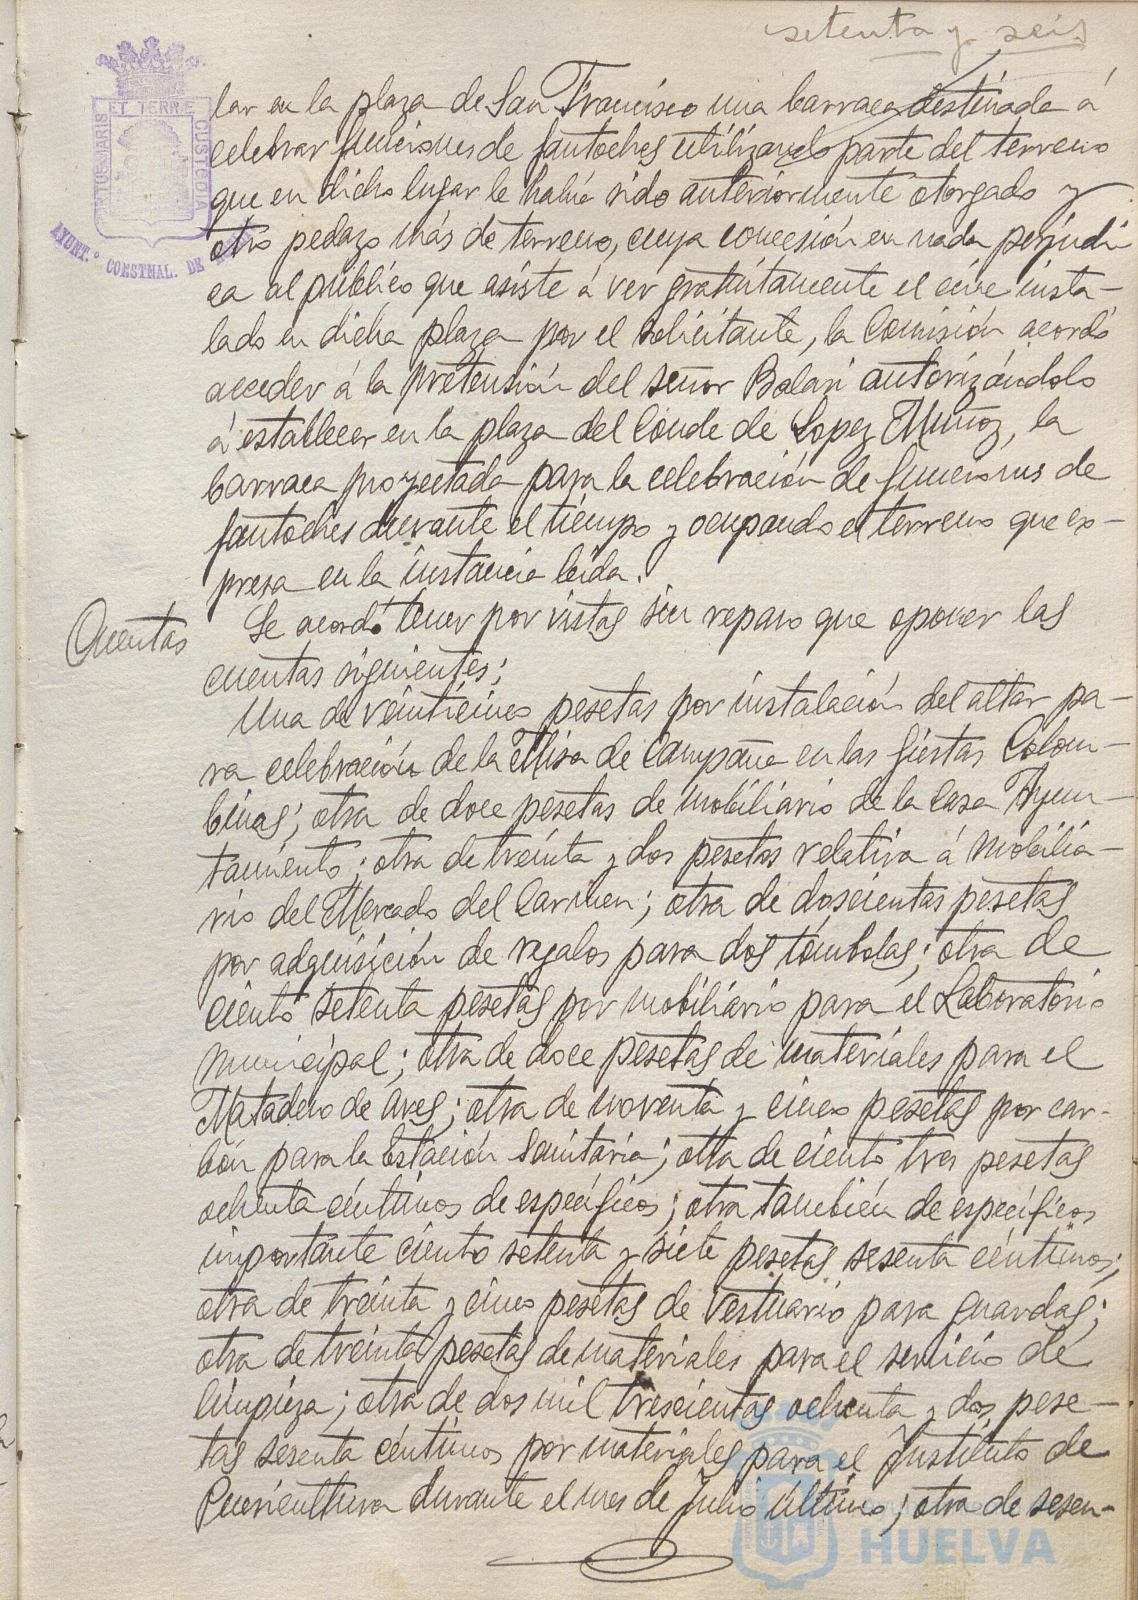 setenta y seis
PORTUS MARIS ET TERRE CUSTODIA
AYUNT.º CONSTNAL. DE
lar en la plaza de San Francisco una barraca destinada á
celebrar funciones de fantoches utilizando parte del terreno
que en dicho lugar le habia sido anteriormente otorgado y
otro pedazo más de terreno, cuya concesión en nada perjudi
ca al público que asiste á ver gratuitamente el cine insta-
lado en dicha plaza por el solicitante, la Comisión acordó
acceder á la pretensión del señor Balari autorizándolo
á establecer en la plaza del Conde de Lopez Muñoz, la
barraca proyectada para la celebración de funciones de
fantoches durante el tiempo y ocupando el terreno que ex-
presa en la instancia leida.
Cuentas
Se acordó tener por vistas sin reparo que oponer las
cuentas siguientes;
Una de veinticinco pesetas por instalación del altar pa-
ra celebración de la Misa de Campaña en las fiestas Colom-
binas; otra de doce pesetas de mobiliario de la Casa Ayun-
tamiento; otra de treinta y dos pesetas relativa á mobilia-
rio del Mercado del Carmen; otra de doscientas pesetas
por adquisición de regalos para dos tómbolas; otra de
ciento setenta pesetas por mobiliario para el Laboratorio
municipal; otra de doce pesetas de materiales para el
Matadero de Aves; otra de noventa y cinco pesetas por car-
bón para la Estación Sanitaria; otra de ciento tres pesetas
ochenta céntimos de específicos; otra también de específicos
importante ciento setenta y siete pesetas sesenta céntimos;
otra de treinta y cinco pesetas de vestuario para guardas;
otra de treinta pesetas de materiales para el servicio de
limpieza; otra de dos mil trescientas ochenta y dos pese-
tas sesenta céntimos por materiales para el Instituto de
Puericultura durante el mes de Julio último; otra de sesen-
HUELVA